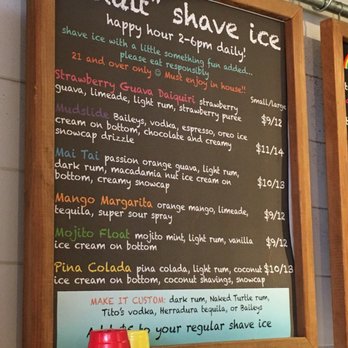 shave ice
happy hour 2-6pm daily!
shave ice with a little something fun added...
please eat responsibly
21 and over only Must enjoy in house!!
Small/Large
Strawberry Guava Daiquiri strawberry
guava, limeade, light rum, strawberry purée $9/12
Mudslide Baileys, vodka, espresso, oreo ice
cream on bottom, chocolate and creamy
snowcap drizzle $11/14
Mai Tai passion orange guava, light rum,
dark rum, macadamia nut ice cream on
bottom, creamy snowcap $10/13
Mango Margarita orange mango, limeade,
tequila, super sour spray $9/12
Mojito Float mojito mint, light rum, vanilla
ice cream on bottom $9/12
Pina Colada pina colada, light rum, coconut $10/13
ice cream on bottom, coconut shavings, snowcap
MAKE IT CUSTOM: dark rum, Naked Turtle rum,
Tito's vodka, Herradura tequila, or Baileys
to your regular shave ice